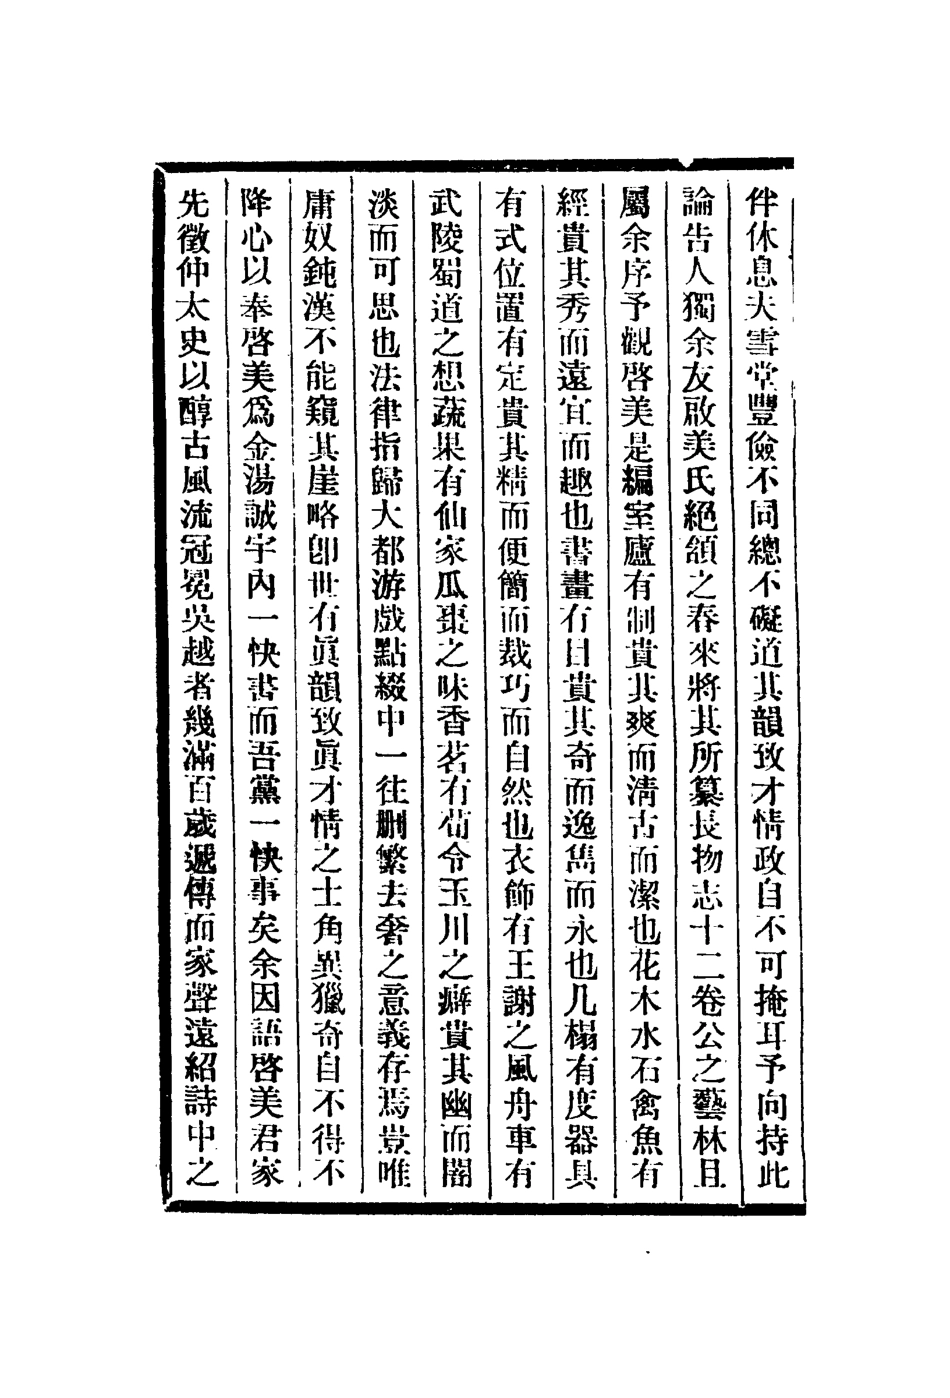 伴休息夫雪堂豐儉不同總不礙道其韻致才情政自不可掩耳予向持此
論告人獨余友啟美氏絕頷之春來將其所纂長物志十二卷公之藝林且
屬余序予觀啓美是編室廬有制貴其爽而淸古而潔也花木水石禽魚有
經貴其秀而遠宜而趣也書畫有目貴其奇而逸雋而永也几榻有度器具
有式位置有定貴其精而便簡而裁巧而自然也衣飾有王謝之風舟車有
武陵蜀道之想蔬果有仙家瓜棗之味香茗有荀令玉川之癖貴其幽而闇
淡而可思也法律指歸大都游戲點綴中一往刪繁去奢之意義存焉豈唯
庸奴鈍漢不能窺其崖略卽世有眞韻致眞才情之士角異獵奇自不得不
降心以奉啓美爲金湯誠宇內一快書而吾黨一快事矣余因語啓美君家
先徵仲太史以醇古風流冠冕吳越者幾滿百歲遞傳而家聲遠紹詩中之